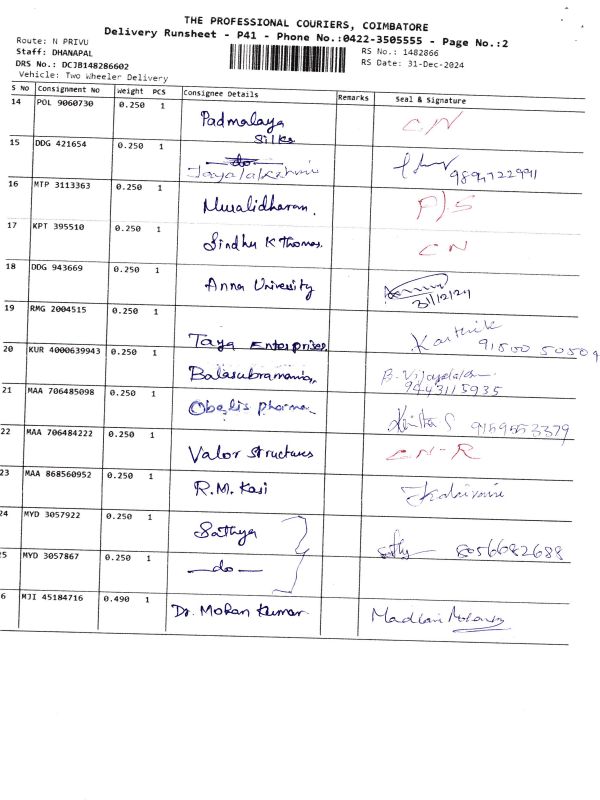 THE PROFESSIONAL COURIERS, COIMBATORE
Delivery Runsheet - P41 - Phone No.:0422-3505555 - Page No.:2
Route: N PRIVU
RS No.: 1482866
Staff: DHANAPAL
RS Date: 31-Dec-2024
DRS No.: DCJB148286602
Vehicle: Two Wheeler Delivery
S No Consignment No Weight PCS Consignee Details Remarks Seal & Signature
14 POL 9060730 0.250 1 Padmalaya Silks CN
15 DDG 421654 0.250 1 do Jayalakshmi
16 MTP 3113363 0.250 1 Muralidharan. P)S
17 KPT 395510 0.250 1 Sindhu K Thomas. CN
18 DDG 943669 0.250 1 Anna University 31/12/24
19 RMG 2004515 0.250 1 Taya Enterprises. Karthik 91500 50509
20 KUR 4000639943 0.250 1 Balasubramania. 9443115935
21 MAA 706485098 0.250 1 Obelis pharma 9159553379
22 MAA 706484222 0.250 1 Valor Structures CN-R
23 MAA 868560952 0.250 1 R.M. Kasi
24 MYD 3057922 0.250 1 Sathya 8056682688
25 MYD 3057867 0.250 1 —do—
6 MJI 45184716 0.490 1 Dr. Mohan Kumar